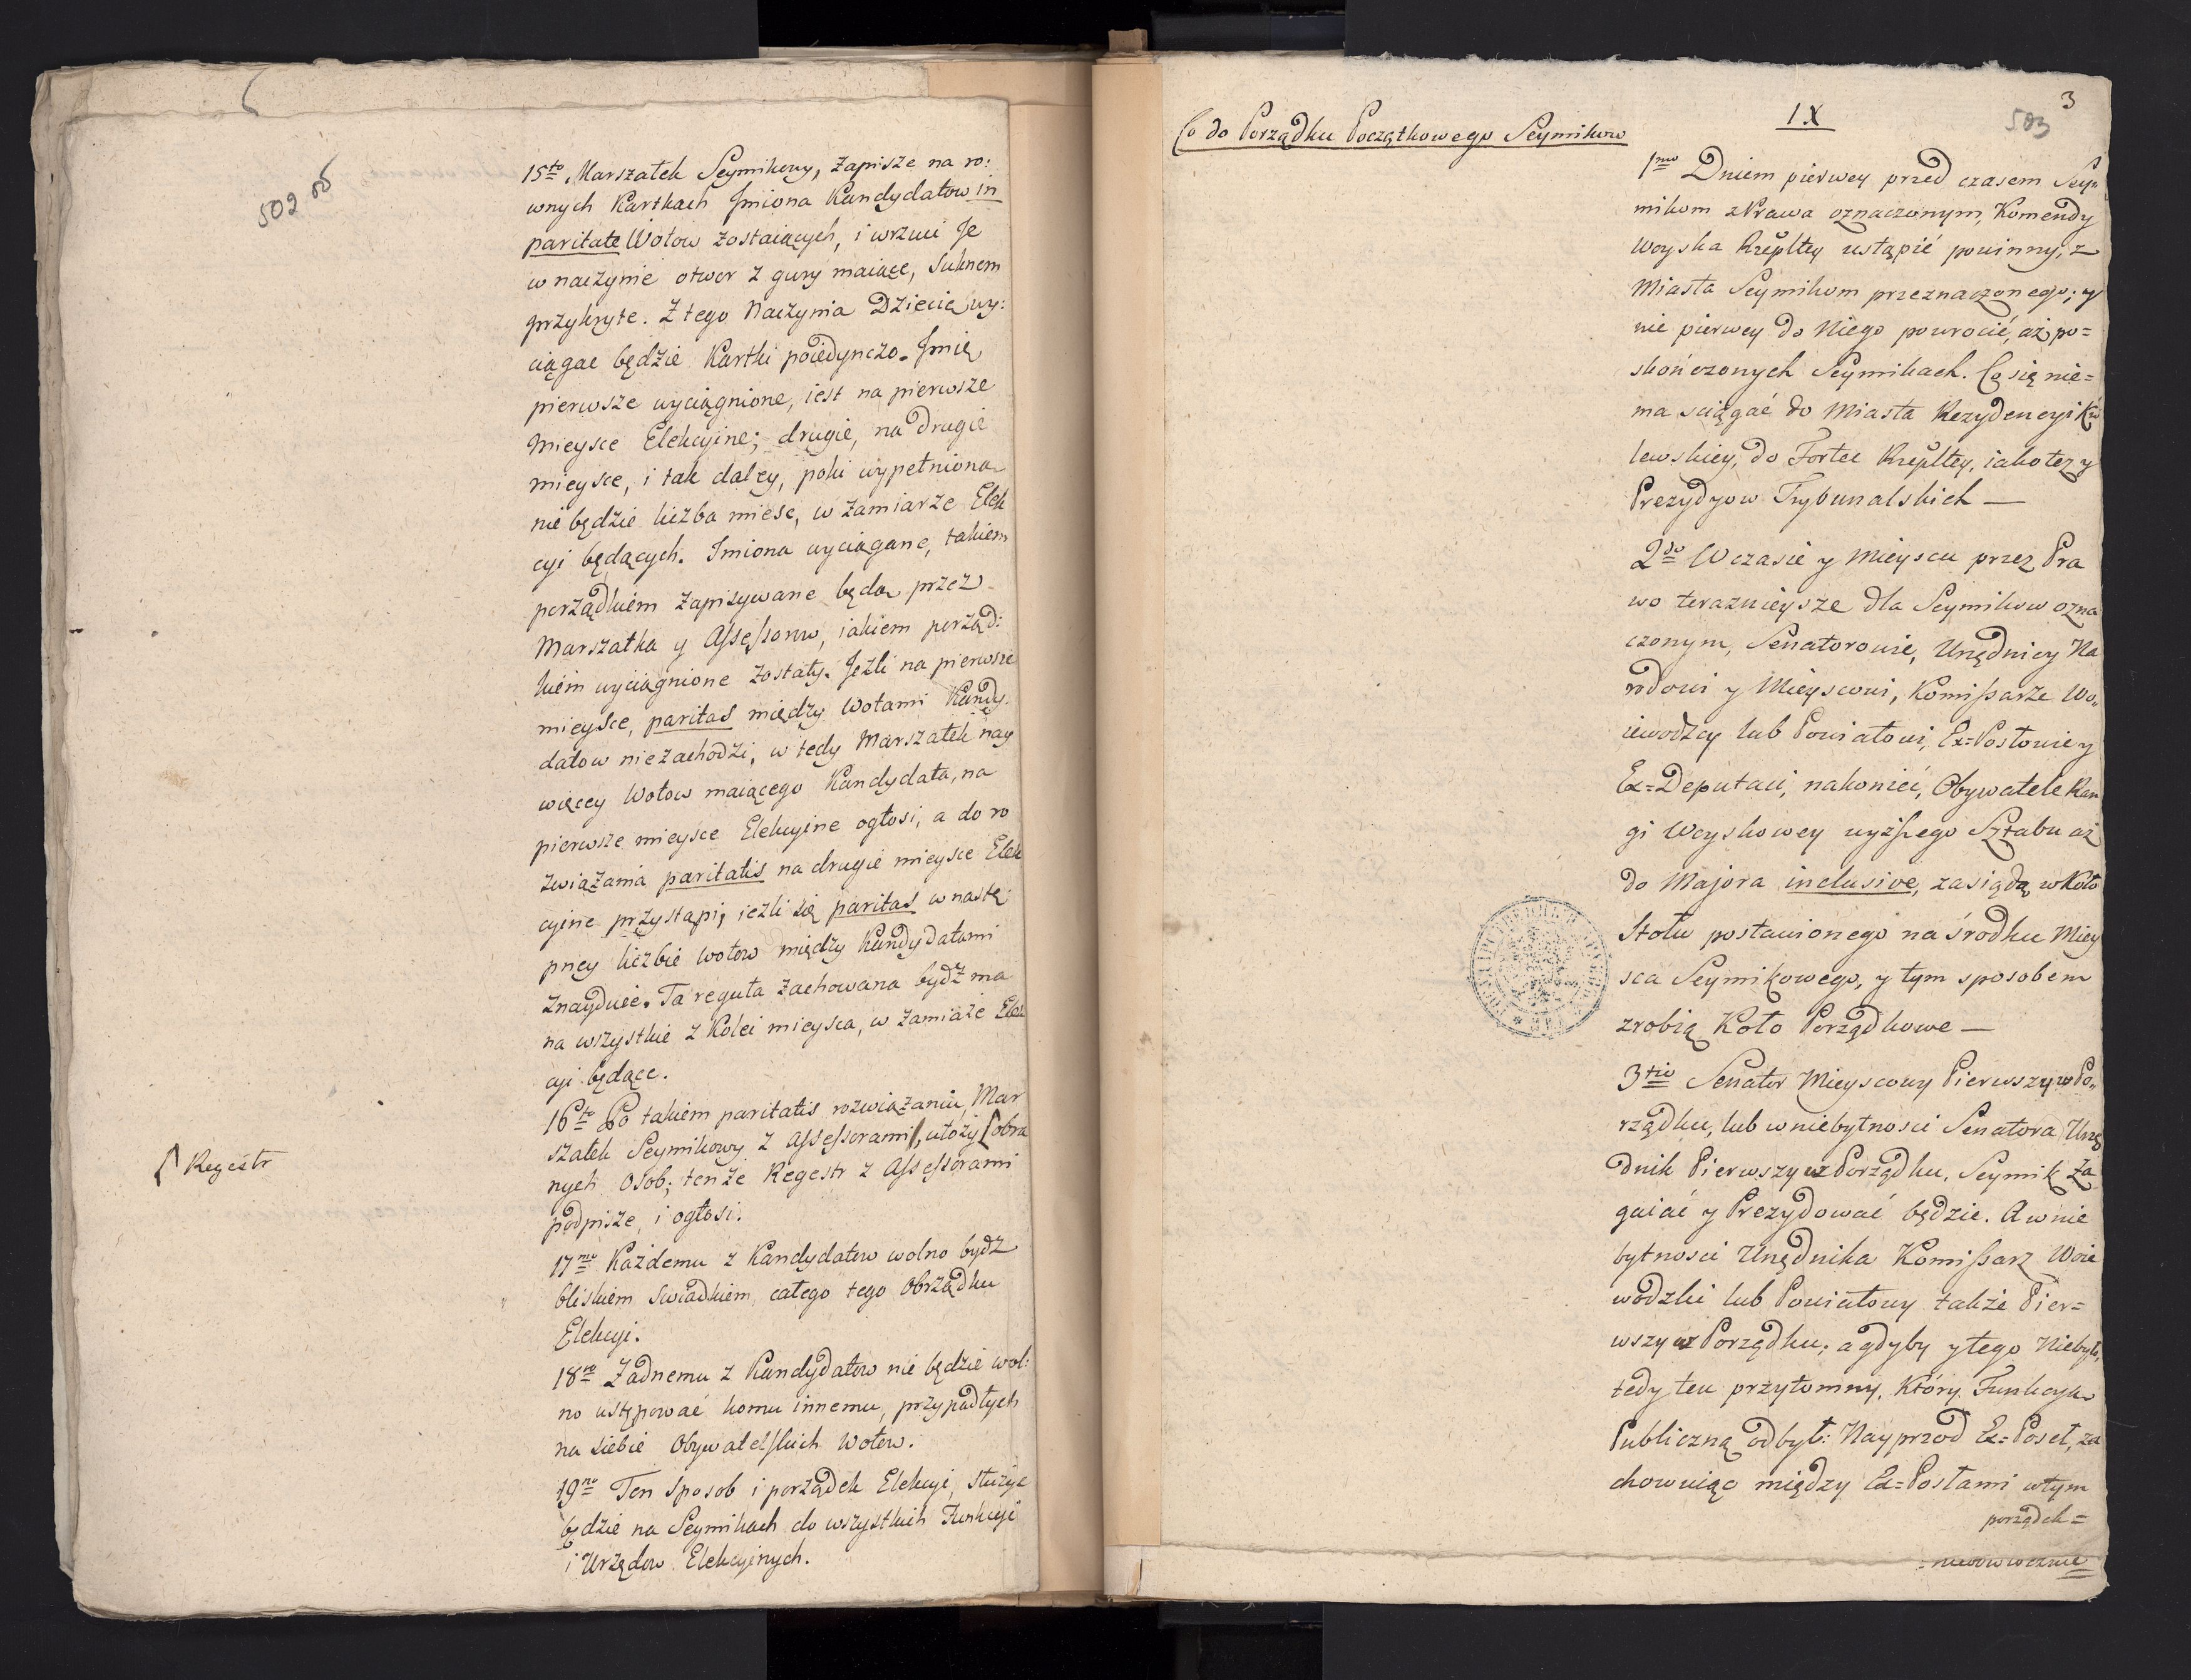 502 об
15to. Marszałek Seymikowy, zapisze na ro:
wnych Kartkach Jmiona Kandydatow in
paritate Wotow zostaiących, i wrzuci Je
w naczynie otwor z gury maiące, suknem
przykryte. Z tego Naczynia Dziecię wy:
ciągac będzie Kartki poiedynczo. Jmię
pierwsze wyciągnione, iest na pierwsze
mieysce Elekcyine; drugie, na drugie
mieysce, i tak daley, poki wypełniona
nie będzie liczba miesc, w zamiarze Elek
cyi będących. Jmiona wyciągane, takiem
porządkiem zapisywane będą przez
Marszałka y Assessorow, iakiem porząd:
kiem wyciągnione zostały. Jeżli na pierwsze
mieysce, paritas między Wotami Kandy
datow niezachodzi, w tedy Marszałek nay
więcey Wotow maiącego Kandydata, na
pierwsze mieysce Elekcyine ogłosi, a do ro
związania paritatis na drugie mieysce Elek
cyine przystąpi, ieżli się paritas w nastę:
pney liczbie wotow między Kandydatami
znayduie. Ta reguła zachowana bydź ma
na wszystkie z Kolei mieysca, w zamiaże Elek
cyi będące.
16to Po takiem paritatis rozwiązaniu, Mar
szałek Seymikowy z Assessorami, ułoży ⌈obra
⌈ Regestr
nych Osob; tenże Regestr z Assessorami
podpisze, i ogłosi.
17mo Każdemu z Kandydatow wolno bydź
bliskiem swiadkiem całego tego Obrządku
Elekcyi.
18vo Żadnemu z Kandydatow nie będzie wol:
no ustępować komu innemu, przypadłych
na siebie Obywatelskich Wotow.
19no Ten sposob i porządek Elekcyi, służyć
będzie na Seymikach do wszystkich Funkcyi
i Urzędow Elekcyinych.
3
503
IX
Co do Porządku Początkowego Seymikow
1mo Dniem pierwey przed czasem Sey:
mikom z Prawa oznaczonym, Komendy
Woyska Rzepltey ustąpić powinny, z
Miasta Seymikom przeznaczonego; y
nie pierwey do Niego powrocić, aż po=
skończonych Seymikach. Co się nie=
ma sciągać do Miasta Rezydencyi Kró
lewskiey, do Fortec Rzepltey, iako też y
Prezydyow Trybunalskich —
2do W czasie y Mieyscu przez Pra
wo teraznieysze dla Seymikow ozna
czonym, Senatorowie, Urzędnicy Na
rodowi y Mieyscowi, Komissarze Wo„
iewodzcy lub Powiatowi, Ex=Posłowie y
Ex=Deputaci, nakoniec, Obywatele Ran
gi Woyskowey wyższego Sztabu aż
do Majora inclusive, zasiądą w Koło
Stołu postawionego na środku Miey
sca Seymikowego, y tym sposobem
zrobią Koło Porządkowe —
3tio Senator Mieyscowy Pierwszy w Po„
rządku, lub w niebytnosci Senatora Urzę
dnik Pierwszy w Porządku, Seymik Za
gaiać y Prezydować będzie. A w nie
bytnosci Urzędnika Komissarz Woie
wodzki lub Powiatowy także Pier=
wszy w Porządku; a gdyby y tego Niebyło,
tedy ten przytomny, Który Funkcyą
Publiczną odbył: Nayprzod Ex=Poseł, za
chowuiąc między Ex=Posłami w tym
porządek=